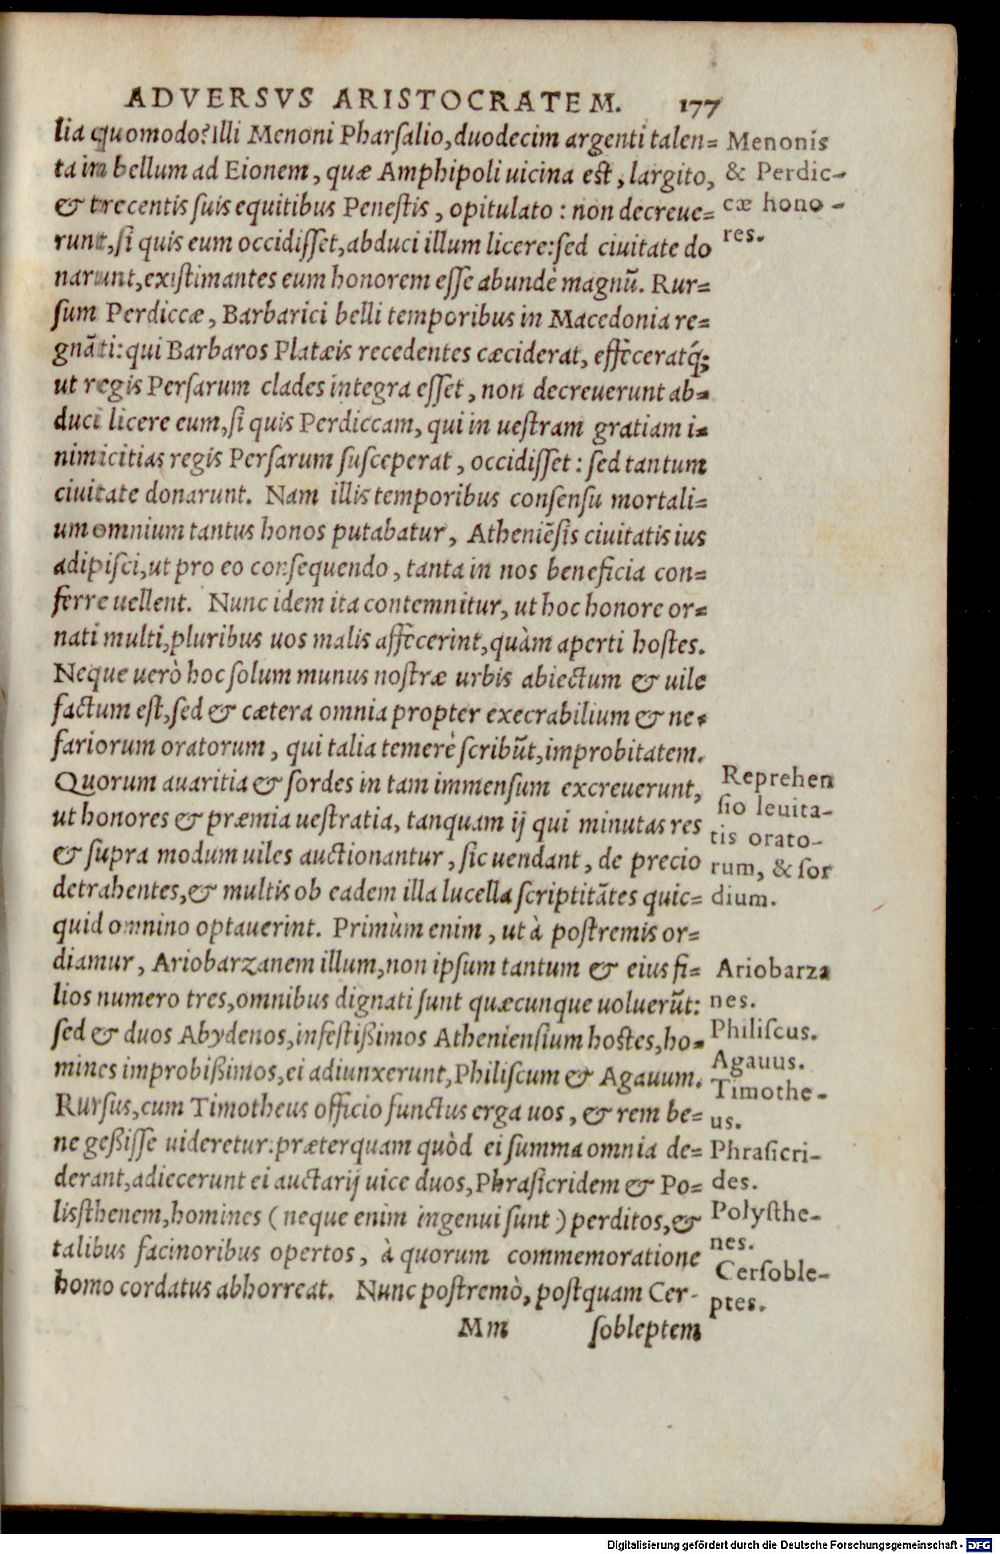 ADVERSVS ARISTOCRATEM. 177
lia quomodo? Illi Menoni Pharſalio, duodecim argenti talen=
ta in bellum ad Eionem, quæ Amphipoli uicina est, largito,
& trecentis ſuis equitibus Peneſtis, opitulato: non decreue=
runt, ſi quis eum occidiſſet, abduci illum licere: ſed ciuitate do
narunt, exiſtimantes eum honorem eſſe abundè magnũ. Rur=
ſum Perdiccæ, Barbarici belli temporibus in Macedonia re=
gnãti: qui Barbaros Platæis recedentes cæciderat, effeceratq́;
ut regis Perſarum clades integra eſſet, non decreuerunt ab=
duci licere eum, ſi quis Perdiccam, qui in ueſtram gratiam i=
nimicitias regis Perſarum ſuſceperat, occidiſſet: ſed tantum
ciuitate donarunt. Nam illis temporibus conſenſu mortali=
um omnium tantus honos putabatur, Atheniẽſis ciuitatis ius
adipiſci, ut pro eo conſequendo, tanta in nos beneficia con=
ferre uellent. Nunc idem ita contemnitur, ut hoc honore or=
nati multi, pluribus uos malis affecerint, quàm aperti hoſtes.
Neque uerò hoc ſolum munus noſtræ urbis abiectum & uile
factum eſt, ſed & cætera omnia propter execrabilium & ne=
fariorum oratorum, qui talia temerè ſcribũt, improbitatem.
Quorum auaritia & ſordes in tam immenſum excreuerunt,
ut honores & præmia ueſtratia, tanquam ij qui minutas res
& ſupra modum uiles auctionantur, ſic uendant, de precio
detrahentes, & multis ob eadem illa lucella ſcriptitãtes quic=
quid omnino optauerint. Primùm enim, ut à poſtremis or=
diamur, Ariobarzanem illum, non ipſum tantum & eius fi=
lios numero tres, omnibus dignati ſunt quæcunque uoluerũt:
ſed & duos Abydenos, infeſtißimos Athenienſium hoſtes, ho=
mines improbißimos, ei adiunxerunt, Philiſcum & Agauum.
Rurſus, cum Timotheus officio functus erga uos, & rem be=
ne geßiſſe uideretur: præterquam quòd ei ſumma omnia de=
derant, adiecerunt ei auctarij uice duos, Phraſicridem & Po=
lisſthenem, homines (neque enim ingenui ſunt) perditos, &
talibus facinoribus opertos, à quorum commemoratione
homo cordatus abhorreat. Nunc poſtremò, poſtquam Cer-
Mm ſobleptem
Menonis
& Perdic-
cæ hono-
res.
Reprehen
ſio leuita-
tis orato-
rum, & ſor
dium.
Ariobarza
nes.
Philiſcus.
Agauus.
Timothe-
us.
Phraſicri-
des.
Polyſthe-
nes.
Cerſoble-
ptes.
Digitalisierung gefördert durch die Deutsche Forschungsgemeinschaft - DFG